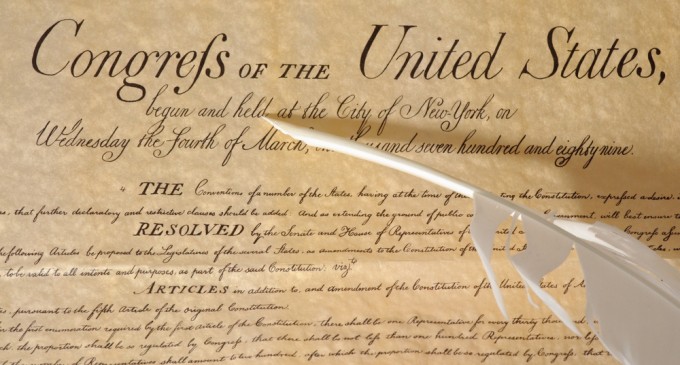 Congreſs OF THE United States,
begun and held at the City of New-York, on
Wednesday the Fourth of March, thousand seven hundred and eighty nine.
THE Conventions of a number of the States, having at the time of the Constitution, expressed a desire
that further declaratory and restrictive clauses should be added. And as extending the ground of public will best ensure
RESOLVED by the Senate and House of Representatives of the Congress
the following Articles be proposed to the Legislatures of the several States, as amendments to the Constitution of the
to be valid to all intents and purposes, as part of the said Constitution; vizt
ARTICLES in addition to, and Amendment of the Constitution of the United States of
pursuant to the fifth Article of the original Constitution.
the first enumeration required by the first article of the Constitution, there shall be one Representative for every thirty
the proportion shall be so regulated by Congreſs, that there shall be not leſs than one hundred Representatives, nor leſs
the number of Representatives shall amount to two hundred, after which the proportion shall be so regulated by Congreſs, that